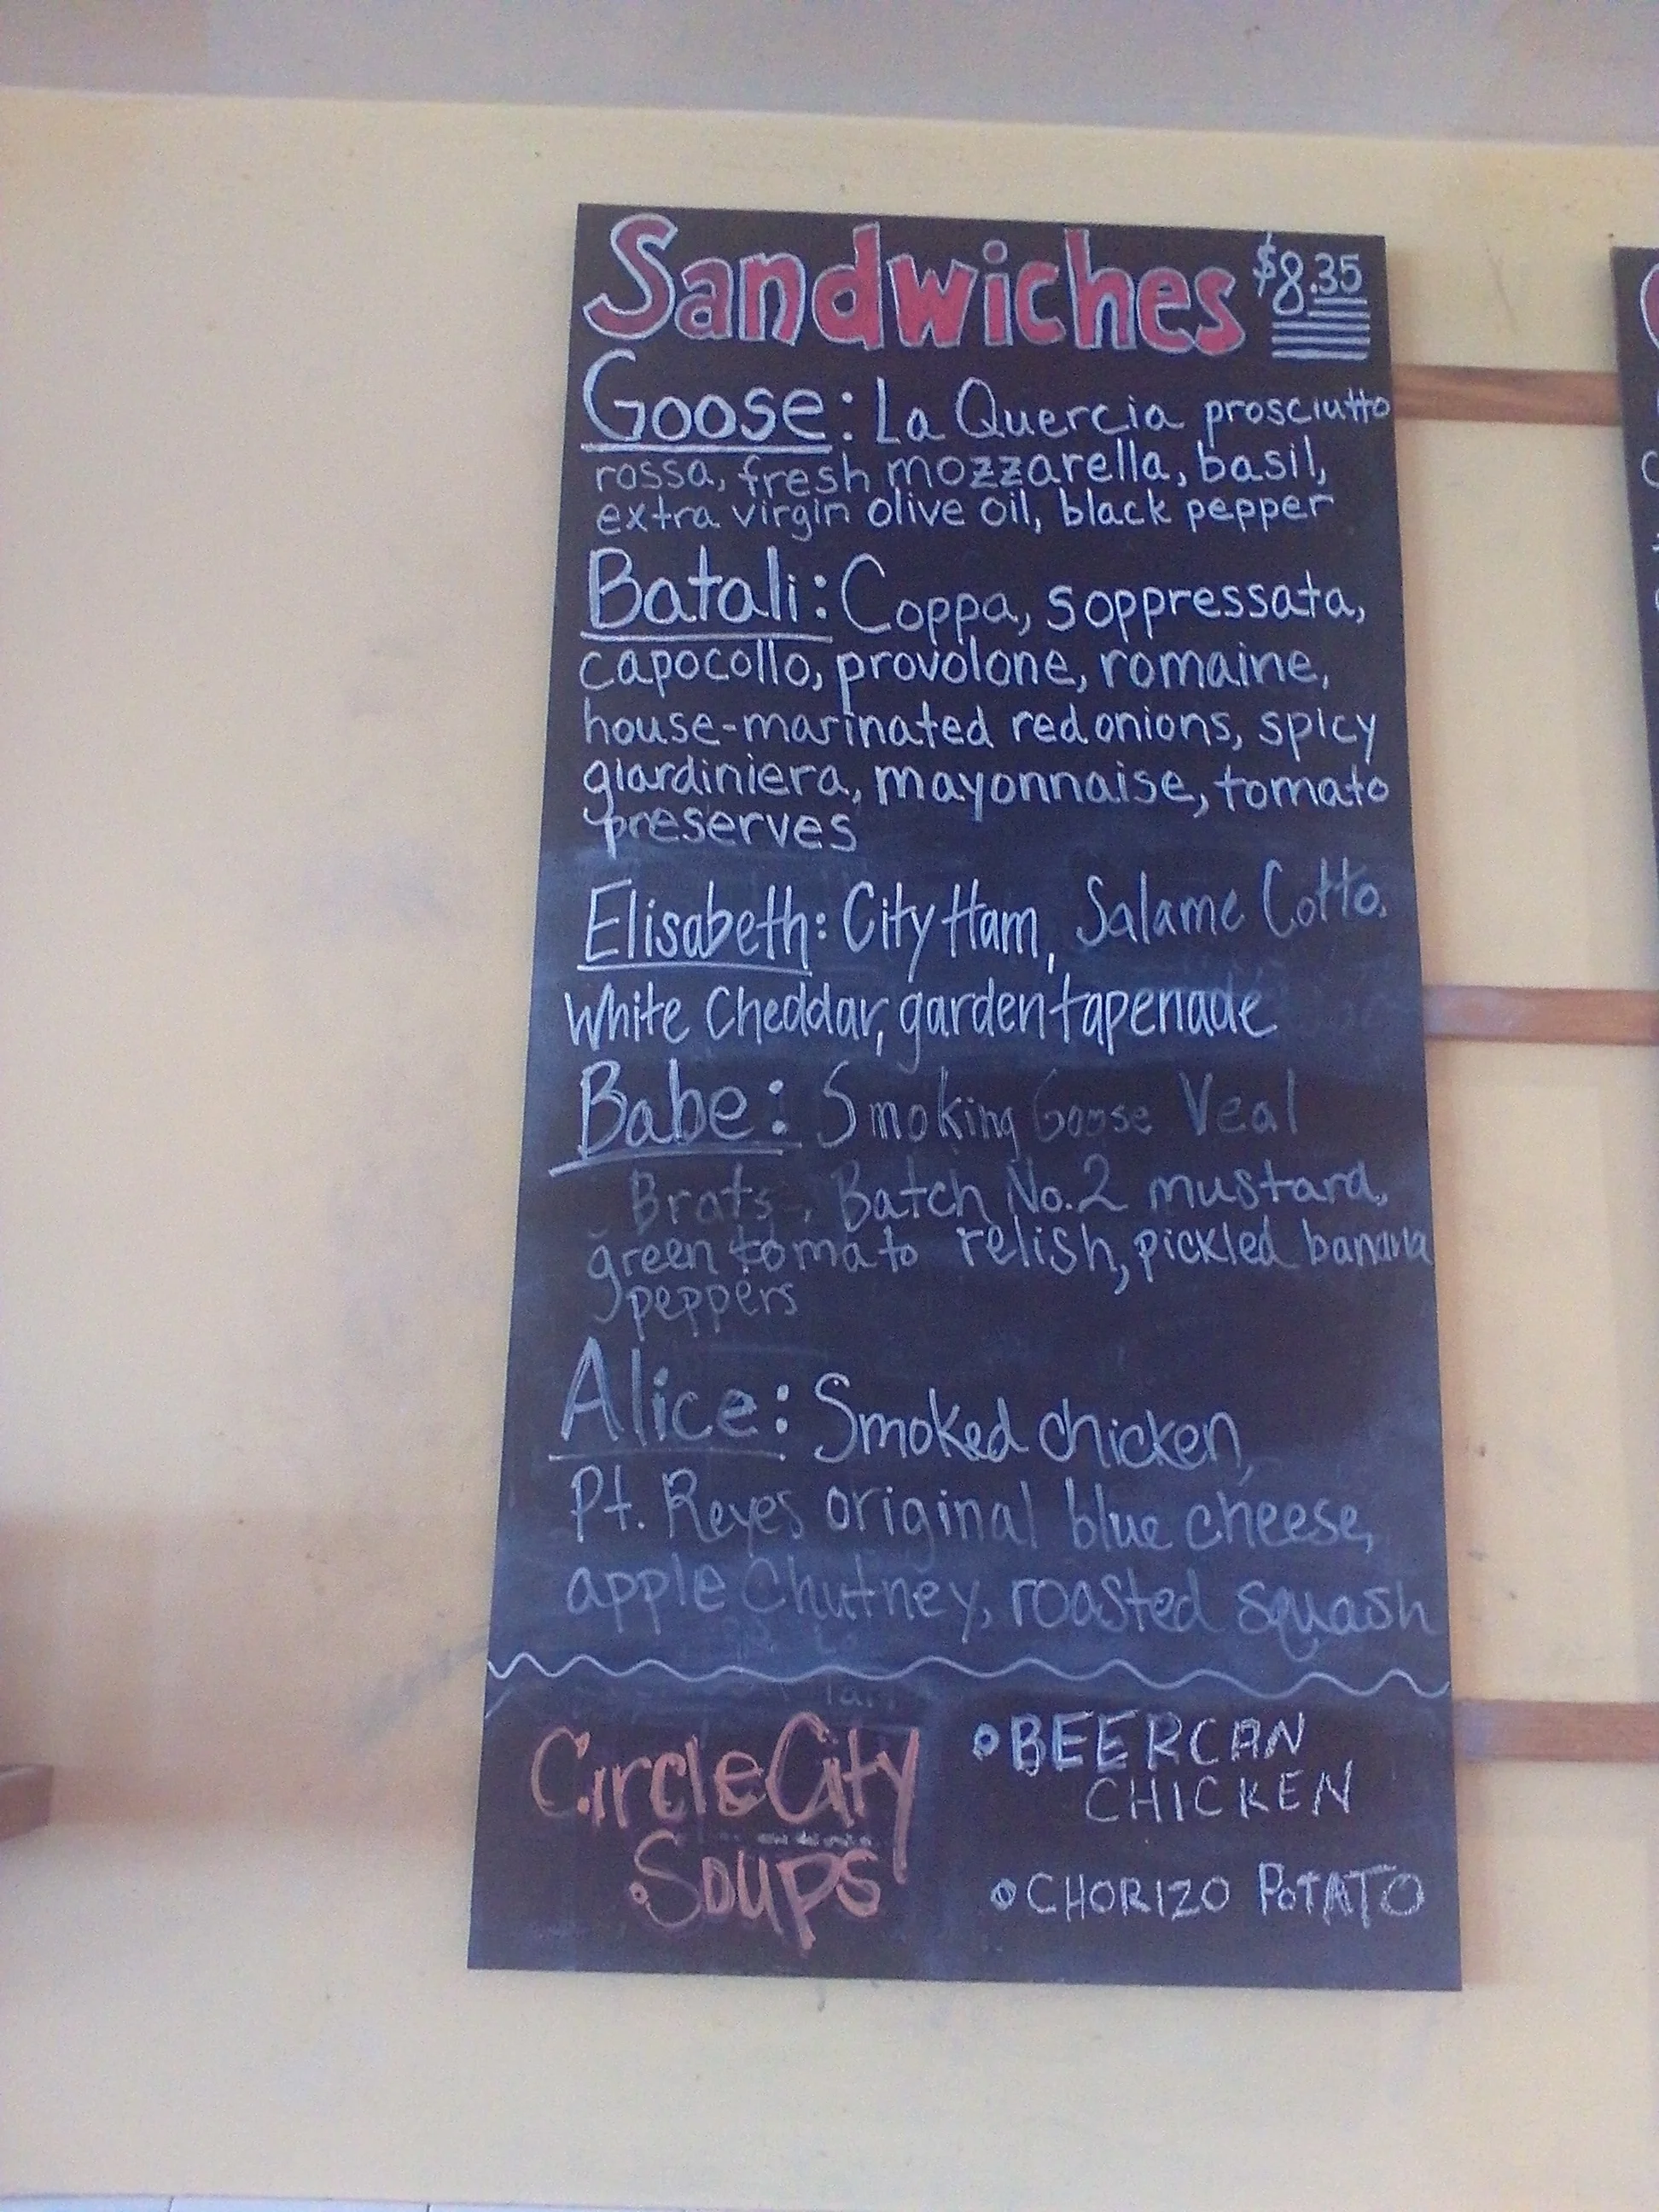 Sandwiches $8.35
Goose: La Quercia prosciutto
rossa, fresh mozzarella, basil,
extra virgin olive oil, black pepper
Batali: Coppa, soppressata,
capocollo, provolone, romaine,
house-marinated red onions, spicy
giardiniera, mayonnaise, tomato
preserves
Elisabeth: City Ham, Salame Cotto,
White Cheddar, garden tapenade
Babe: Smoking Goose Veal
Brats, Batch No.2 mustard,
green tomato relish, pickled banana
peppers
Alice: Smoked chicken,
Pt. Reyes original blue cheese,
apple Chutney, roasted squash
Circle City
Soups
• BEERCAN
CHICKEN
• CHORIZO POTATO